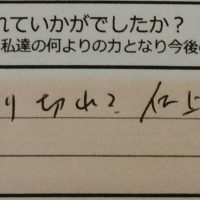 れていかがでしたか？
私達の何よりの力となり今後の
り切れる 仕上